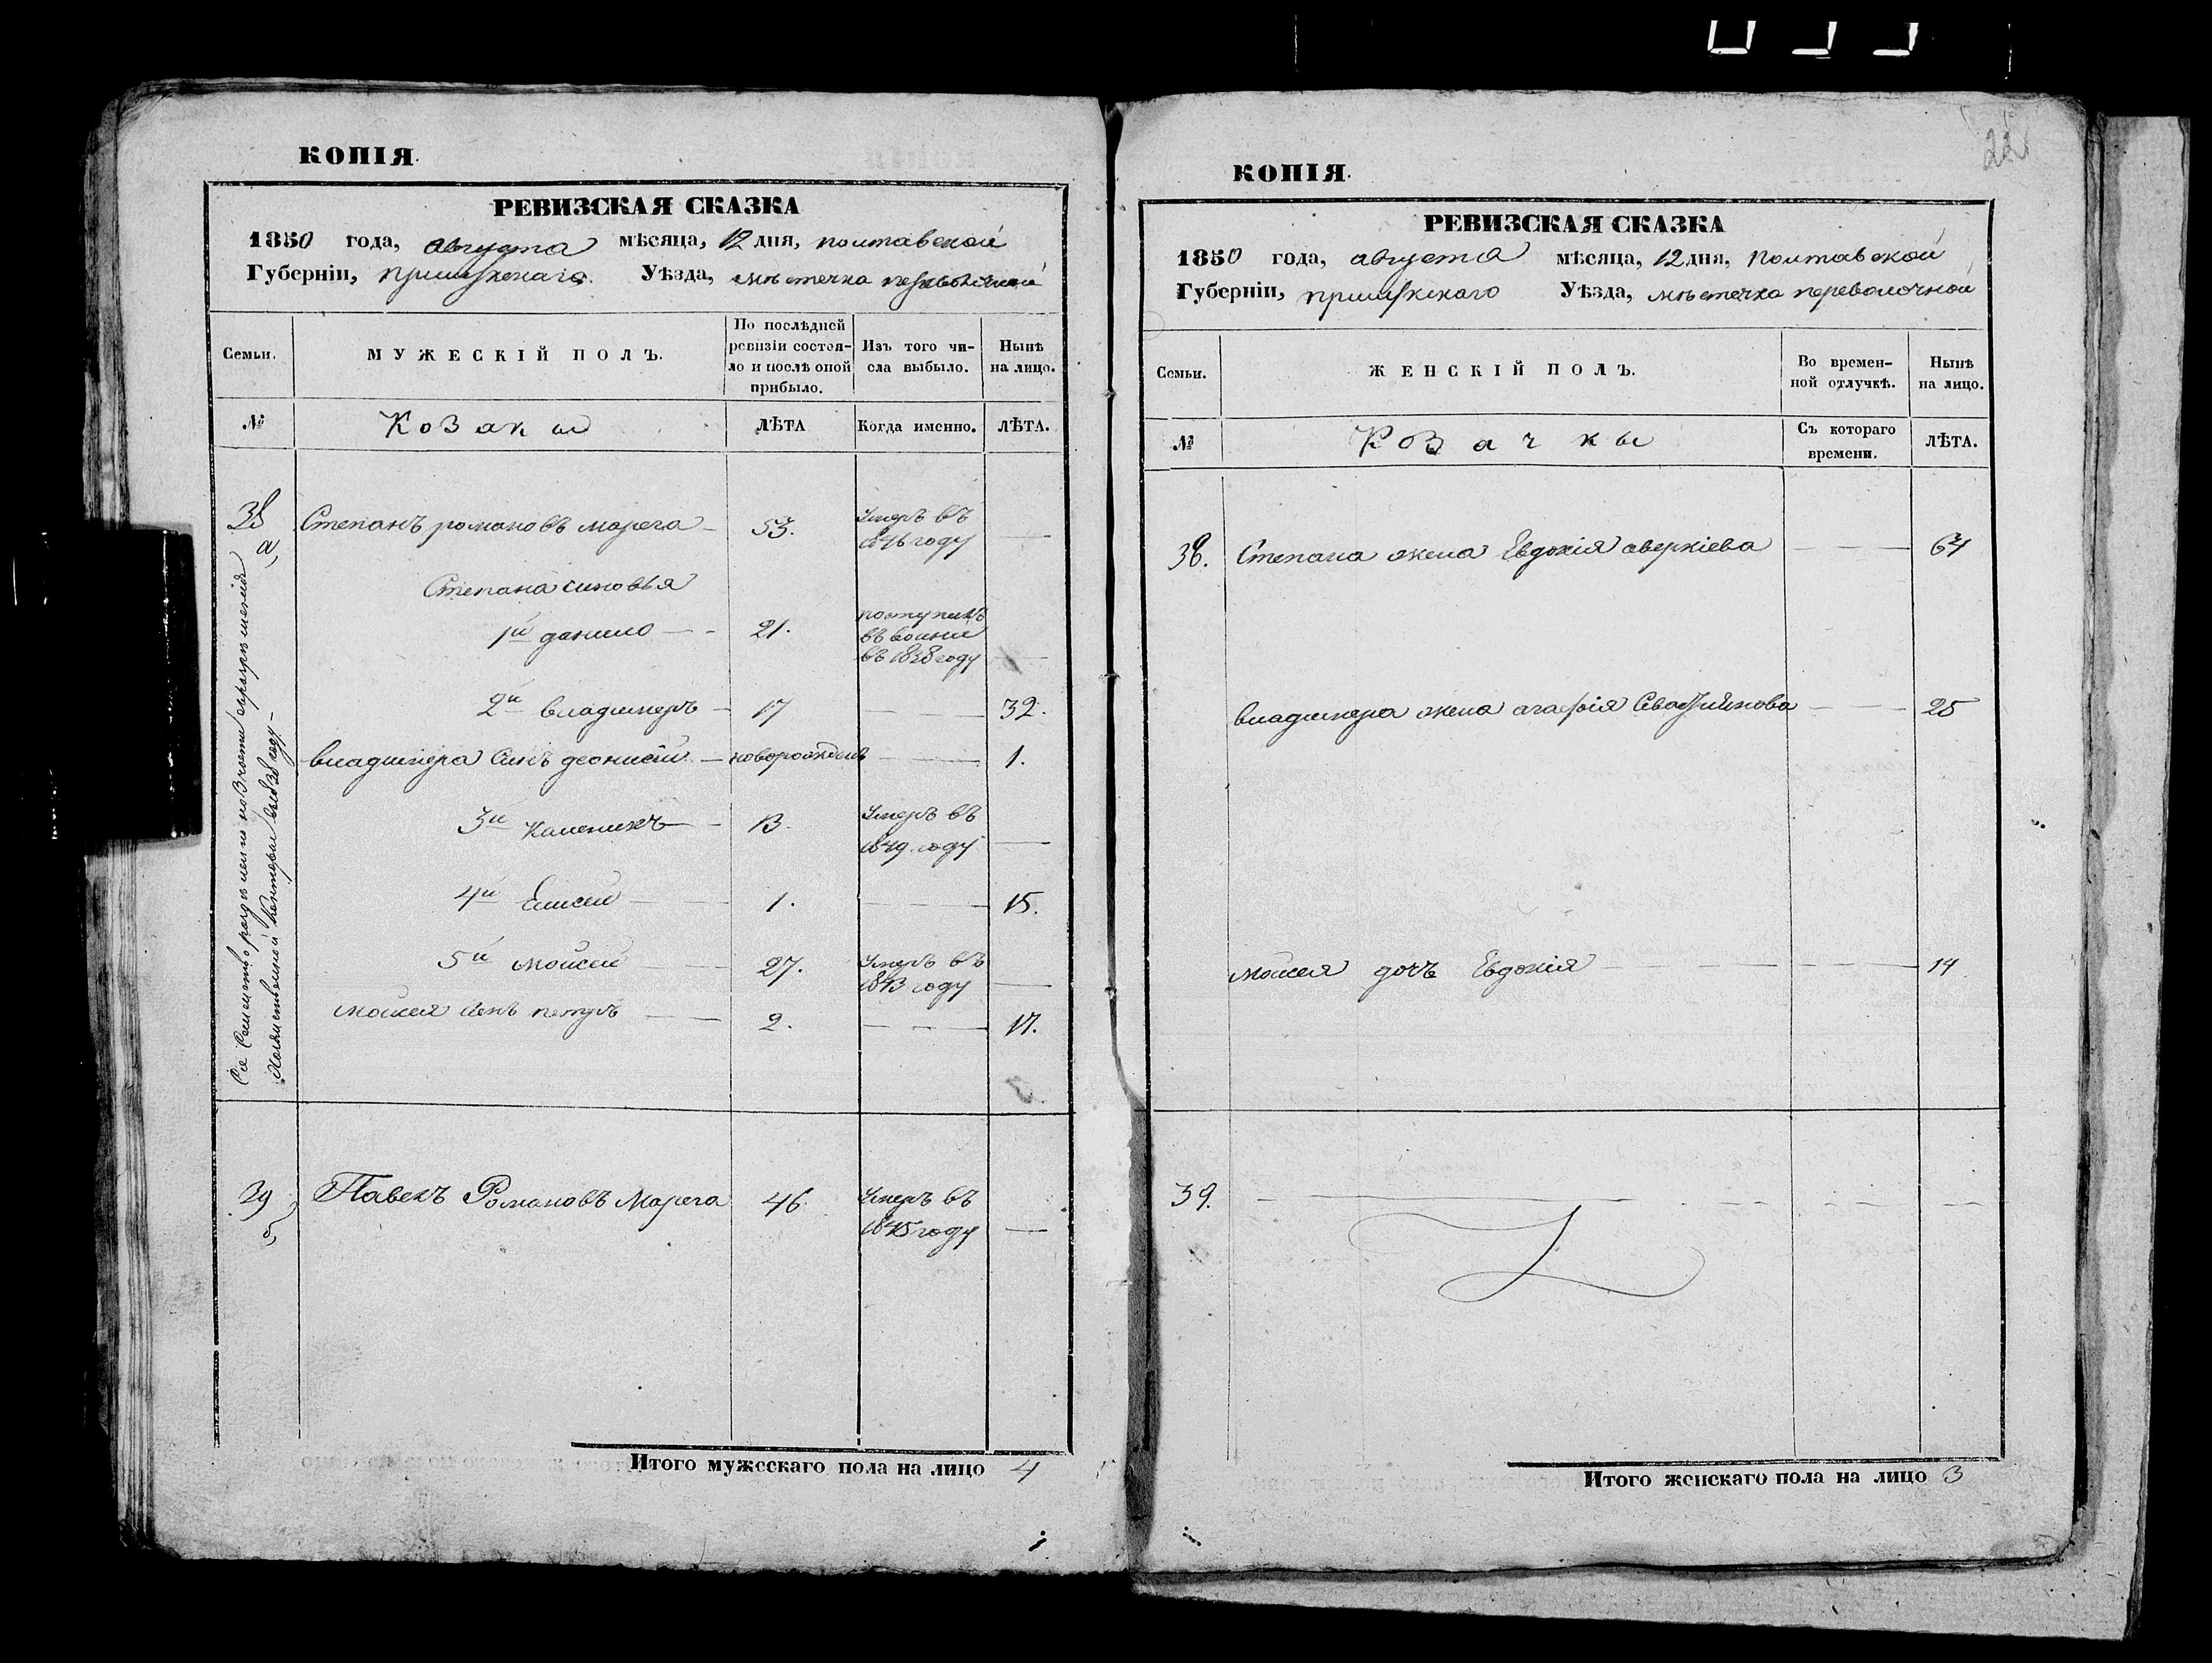 КОПІЯ.
РЕВИЗСКАЯ СКАЗКА
1850 года, августа мѣсяца, 12 дня, полтавской
Губерніи, прилукскаго Уѣзда, мѣстечка переволочной
Семьи.
МУЖЕСКІЙ ПОЛЪ.
По послѣдней ревизіи состоя-
ло и послѣ оной прибыло.
Изъ того чи-
сла выбыло.
Нынѣ
на лицо.
№
Козакы
ЛѢТА
Когда именно.
ЛѢТА.
38 а,
Степанъ романовъ марега 53. Умеръ въ
1846 году
Степана синовья
1й данило 21. поступилъ
въ
въ 1838 году
2й владимеръ 17 32.
владимера Синъ деонисій новорожденъ 1.
3й Каленикъ 13. Умеръ въ
1849. году
4й Елисей 1. 15.
5й моисей 27. Умеръ въ
1843 году
моисея Синъ петръ 2. 17.
Сіе Семейство
Хозяйственной Конторы 1838 году
39
Павелъ Романовъ Марега 46. Умеръ въ
1845 году
Итого мужескаго пола на лицо 4
22
КОПІЯ.
РЕВИЗСКАЯ СКАЗКА
1850 года, августа мѣсяца, 12 дня, полтавской
Губерніи, прилукскаго Уѣзда, мѣстечка переволочной
Семьи.
ЖЕНСКІЙ ПОЛЪ.
Во времен-
ной отлучкѣ.
Нынѣ
на лицо.
№
Козачкы
Съ котораго
времени.
ЛѢТА.
38. Степана жена Евдокія аверкіева 64
владимера жена агафія 25
моисея дочъ Евдокія 14
39.
Итого женскаго пола на лицо 3